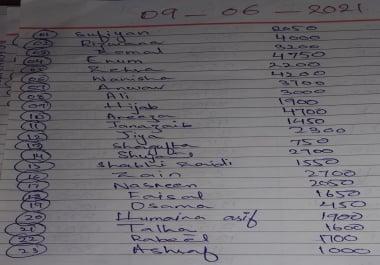 09 - 06 - 2021
01 Sufiyan 2050
02 4000
03 Komal 3200
04 Enum 4750
05 Zehra 2200
06 Warisha 4200
07 Anwar 3700
08 Ali 3000
09 Hijab 1900
10 Areeza 4700
11 Janazaib 1450
12 Jiya 2300
13 Shagufta 750
14 2700
15 Shabbir Zaidi 1550
16 Zain 2700
17 Nasreen 2050
18 Faisal 1650
19 Osama 450
20 Humaira asif 1900
21 Talha 1600
22 Rabeel 1700
23 Ashraf 1000